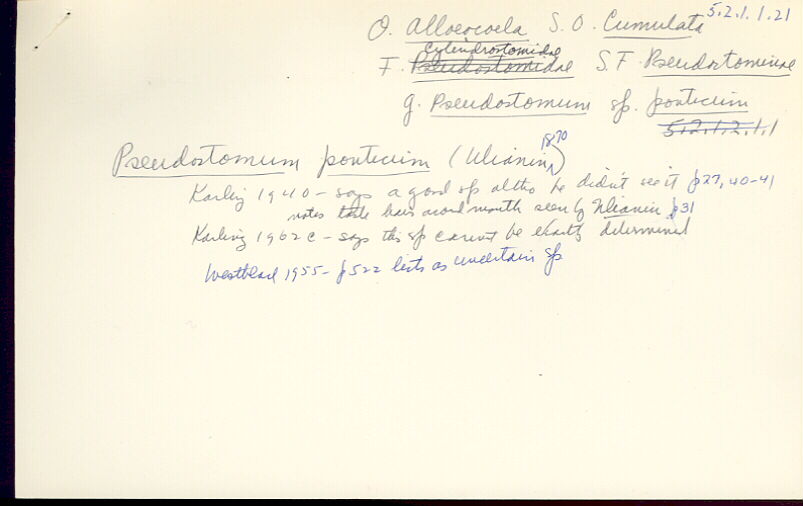 O. Alloeocoela S.O. Cumulata 5.2.1.1.21
Cylindrostomidae
F. Pseudostomidae S.F. Pseudostominae
g. Pseudostomum sp. ponticum
5.2.1.2.1.1
Pseudostomum ponticum (Ulianin, 1870)
Karling 1940 - says a good sp altho he didn't see it p27, 40-41
notes hairs around mouth seen by Ulianin p31
Karling 1962c - says this sp cannot be exactly determined
Westblad 1955 - p522 lists as uncertain sp